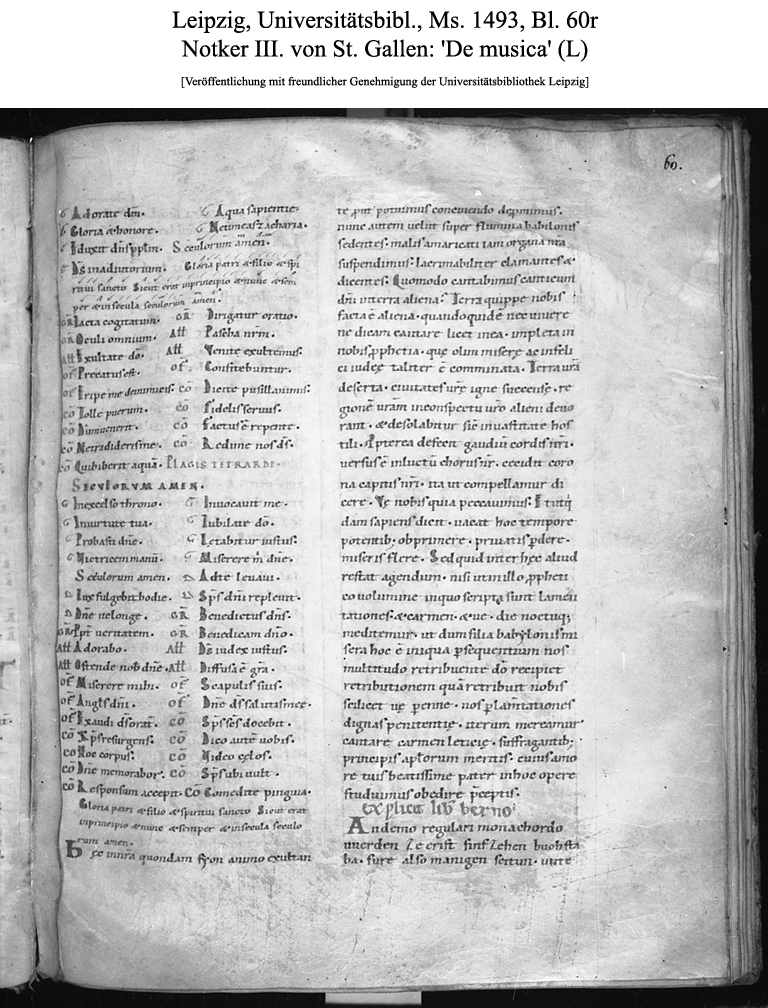 Leipzig, Universitätsbibl., Ms. 1493, Bl. 60r
Notker III. von St. Gallen: 'De musica' (L)
[Veröffentlichung mit freundlicher Genehmigung der Universitätsbibliothek Leipzig]
60.
Adorate dm̄. Aqua sapientie.
Gloria & honore. Ne timeas zacharia.
Eduxit dn̄s pplm̄. Seculorum amen.
Ds̄ in adiutorium. Gloria patri & filio & sp̄i
ritui sancto Sicut erat in principio & nunc & sem
per & in secula seculorum amen.
GR̄ Iacta cogitatum. GR̄ Dirigatur oratio.
GR̄ Oculi omnium. Aƚƚ Pascha nr̄m.
Aƚƚ Exultate do. Aƚƚ Venite exultemus.
of̄ Precatus est. of̄ Confitebuntur.
of̄ Eripe me de inimicis. cō Dicite pusillanimis.
cō Tolle puerum. cō Fidelis seruus.
cō Dum uenerit. cō Factus ē repente.
cō Ne tradideris me. cō Redime nos ds̄.
cō Qui biberit aquā. PLAGIS TETRARDI.
SECULORVM AMEN.
In excelso throno. Inuocauit me.
In uirtute tua. Iubilate dō.
Probasti dn̄e. Letabitur iustus.
Victricem manū. Miserere m̄ dn̄e.
Seculorum amen. Ad te leuaui.
Lux fulgebit hodie. Sp̄s dn̄i repleuit.
Dn̄e ne longe. Benedictus dn̄s.
GR̄ Ppt̄ ueritatem. GR̄ Benedicam dn̄o.
Aƚƚ Adorabo. Aƚƚ Ds̄ iudex iustus.
Aƚƚ Ostende nob dn̄e. Aƚƚ Diffusa ē gr̄a.
of̄ Miserere mihi. of̄ Scapulis suis.
of̄ Angƚs dn̄i. of̄ Dn̄e ds̄ salutis mee.
of̄ Exaudi ds̄ orat̄. cō Sp̄s sc̄s docebit.
cō Xp̄s resurgens. cō Dico autē uobis.
cō Hoc corpus. cō Video cęlos.
cō Dn̄e memorabor. cō Sp̄s ubi uult.
cō Responsum accepit. Cō Comedite pinguia.
Gloria patri & filio & spiritui sancto Sicut erat
in principio & nunc & semper & in secula seculo
rum amen.
quondam syon animo exultan
te put potuimus concinendo deprimus.
nunc autem uelut super flumina babilonis
sedentes. malis amaricati iam organa nr̄a
suspendimus. lacrimabiliter clamantes &
dicentes. Quomodo cantabimus canticum
dn̄i in terra aliena? Terra quippe nobis
facta ē aliena. quando quidē nec uiuere
ne dicam cantare licet in ea. impleta in
nobis pphetia. quę olim miserę ac infeli
ci iudeę taliter ē comminata. Terra ur̄a
deserta. ciuitates ur̄ę igne succensę. re
gionē ur̄am in conspectu ur̄o alieni deuo
rant. & desolabitur sic̄ in uastitate hos
tili. Ppterea defecit gaudiū cordis nr̄i.
uersus ē in luctū chorus nr̄. cecidit coro
na capitis nr̄i. ita ut compellamur di
cere. Vę nobis quia peccauimus. Et utiq
dam sapiens dicit. uacat hoc tempore
potentib; obprimere. priuatis pdere.
miseris flere. Sed quid inter hęc aliud
restat agendum. nisi ut in illo ppheti
co uolumine in quo scripta sunt lamen
tationes & carmen & uę. die noctuq;
meditemur. ut dum filia babylonis mi
sera hoc ē iniqua psequentium nos
multitudo retribuente dō recipiet
retributionem quā retribuit nobis
scilicet uę penne. nos p lamtationes
dignas penitentię. iterum mereamur
cantare carmen leticię. suffragantib;
principis aptorum meritis. cuius amo
re tuis beatissime pater in hoc opere
studuimus obedire pceptis.
explicit lib berno
An demo regulari monachordo
uuerden Ze erist sinf Zehen buohsta
ba. sure also manigen seitun. unte